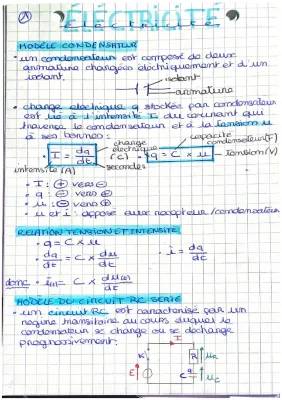 ①
ÉLECTRICITÉ
MODÈLE CONDENSATEUR
• un condensateur est composé de deux
armature chargées électriquement et d'un
isolant.
isolant
armature
• charge électrique q stockée par condensateur
est lié à l'intensité I du courant qui
traverse le condensateur et à la tension u
à ses bornes :
charge électrique (C)
capacité condensateur (F)
• I = dq/dt
• q = C × u
Tension (V)
intensité (A)
secondes
• I : ⊕ vers ⊖
• q : ⊖ vers ⊕
• u : ⊖ vers ⊕
• u et i : opposé pour récepteur/condensateur
RELATION TENSION ET INTENSITÉ
• q = C × u
• dq/dt = C × du/dt
• i = dq/dt
donc i(t) = C × du(t)/dt
MODÈLE DU CIRCUIT RC SÉRIE
• un circuit RC est caractérisé par un
régime transitoire au cours duquel le
condensateur se charge ou se décharge
progressivement.
I
K
R
uR
E
C
q
uC